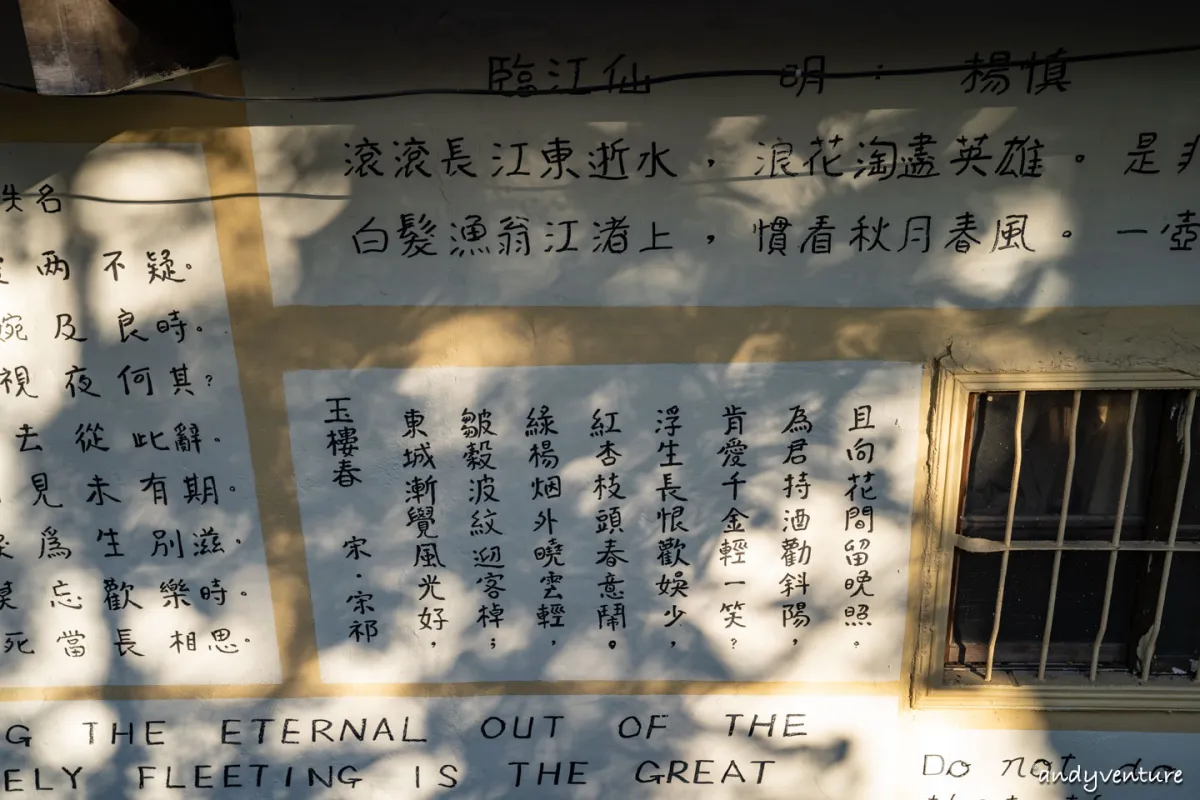 臨江仙 明·楊慎
滾滾長江東逝水，浪花淘盡英雄。是非
白髮漁翁江渚上，慣看秋月春風。一壺
佚名
兩不疑。
婉及良時。
視夜何其？
去從此辭。
見未有期。
爲生別滋。
莫忘歡樂時。
死當長相思。
玉樓春 宋·宋祁
東城漸覺風光好，
皺縠波紋迎客棹；
綠楊烟外曉雲輕，
紅杏枝頭春意鬧。
浮生長恨歡娛少，
肯愛千金輕一笑？
為君持酒勸斜陽，
且向花間留晚照。
G THE ETERNAL OUT OF THE
ELY FLEETING IS THE GREAT
Do not do
andyventure